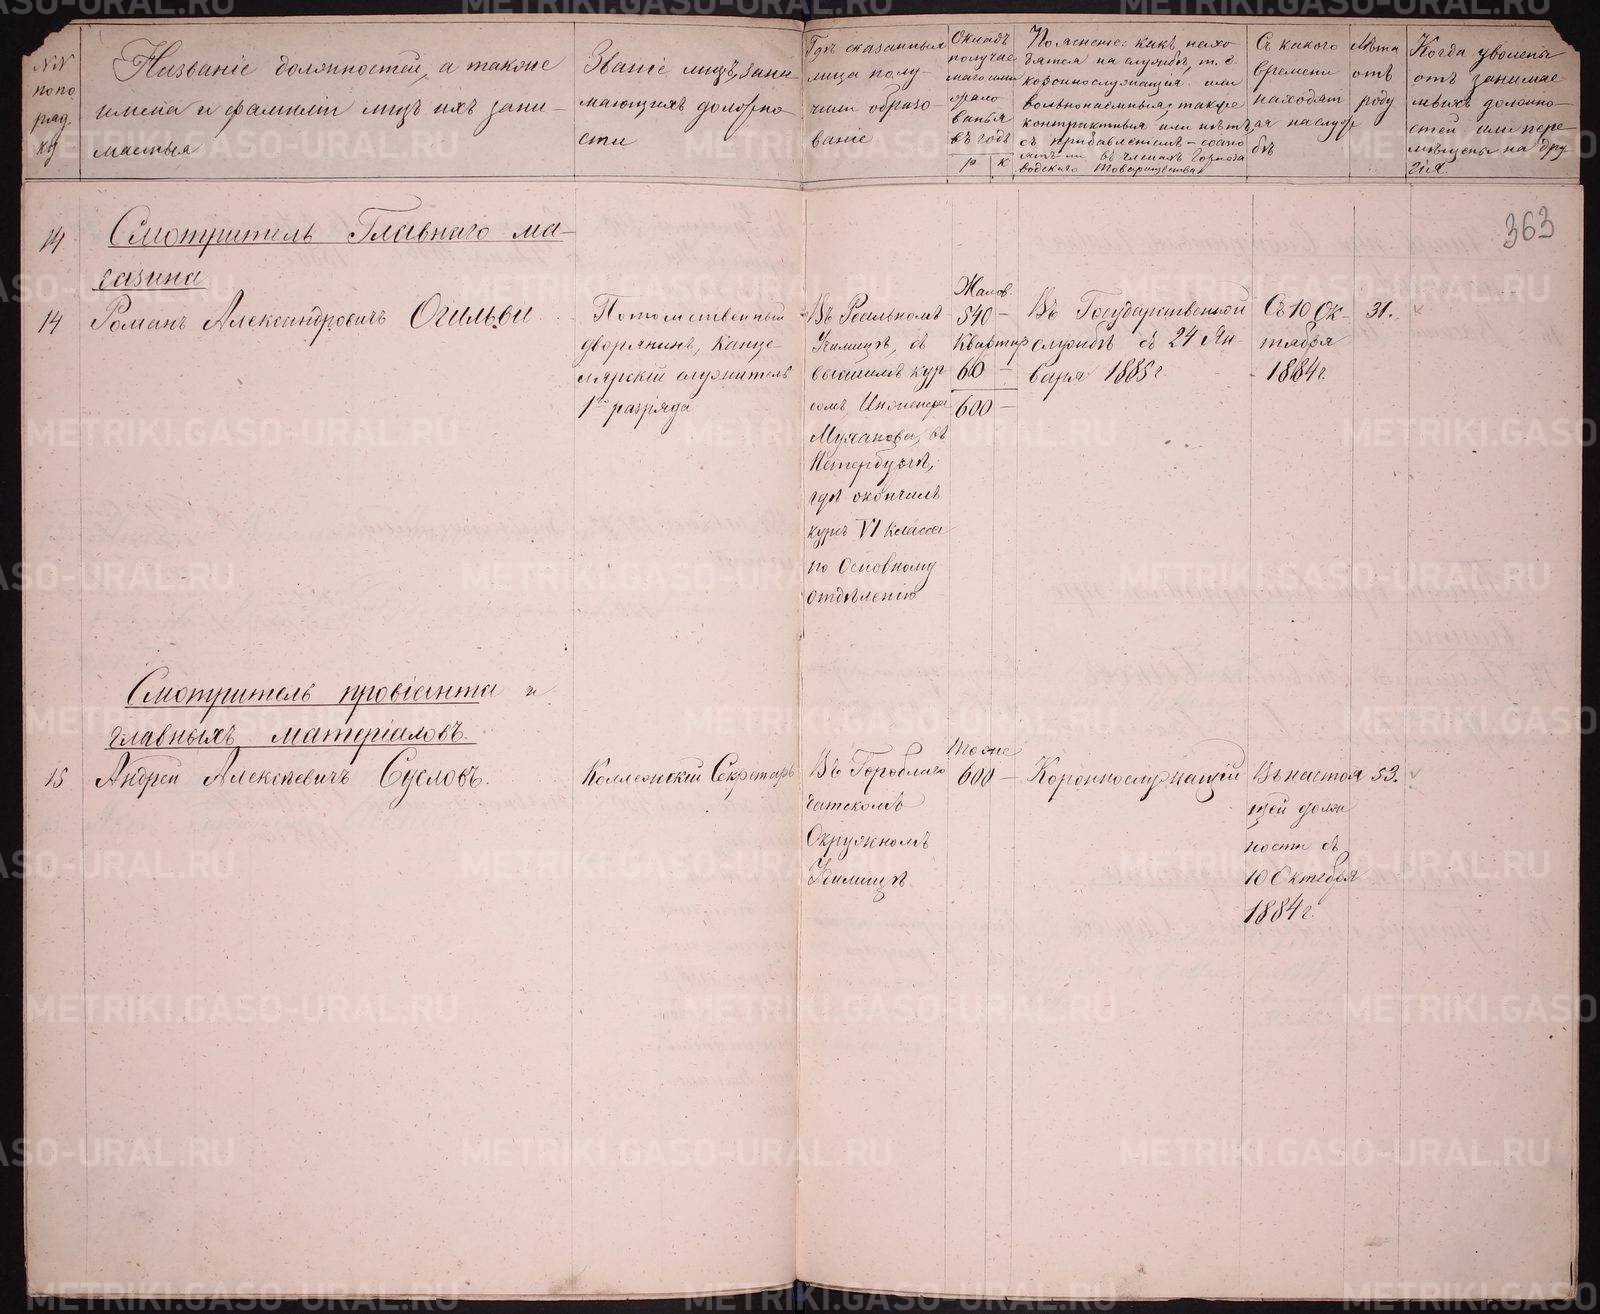 №№ по по ряд. ку
Названіе должностей, а также
имена и фамиліи лицъ ихъ зани-
маемыя
Званіе лицъ, зани
мающихъ должно
сти
Гдѣ сказанныя
лица полу-
чили образо
ваніе
Окладъ
получае
маго ими
жало
ванья
въ годъ
Р К
Поясненіе: какъ нахо-
дятся на службѣ, т. е.
короннослужащія или
вольнонаемныя, также
контрактныя или нѣтъ,
съ прибавленіемъ – состо
ятъ ли въ членахъ Горноза
водскаго Товарищества
Съ какого
времени
находят
ся на служ
бѣ
Лѣта
отъ
роду
Когда уволены
отъ занимае
мыхъ должно-
стей или пере-
мѣщены на дру
гія.
363
14 Смотритель Главнаго ма-
газина
14 Романъ Александровичъ Огильви
Потомственный
дворянинъ, Канце-
лярскій служитель
1го разряда
Въ Реальномъ
Училищѣ, съ
высшимъ кур
сомъ, Инженера
Муханова, въ
Петербургѣ,
гдѣ окончилъ
курсъ VI класса
по Основному
отдѣленію
Жалов.
540 –
Квартир
60 –
600 –
Въ Государственной
службѣ съ 24 Ян-
варя 1885 г.
Съ 10 Ок-
тября
1884 г.
31.
Смотритель провіанта и
главныхъ матеріаловъ.
15 Андрей Алексѣевичъ Сусловъ.
Коллежскій Секретарь
Въ Гороблаго
датскомъ
Окружномъ
Училищѣ.
Тоже
600 –
Короннослужащій
Въ настоя
щей долж
ности съ
10 Октября
1884 г.
53.
METRIKI.GASO-URAL.RU